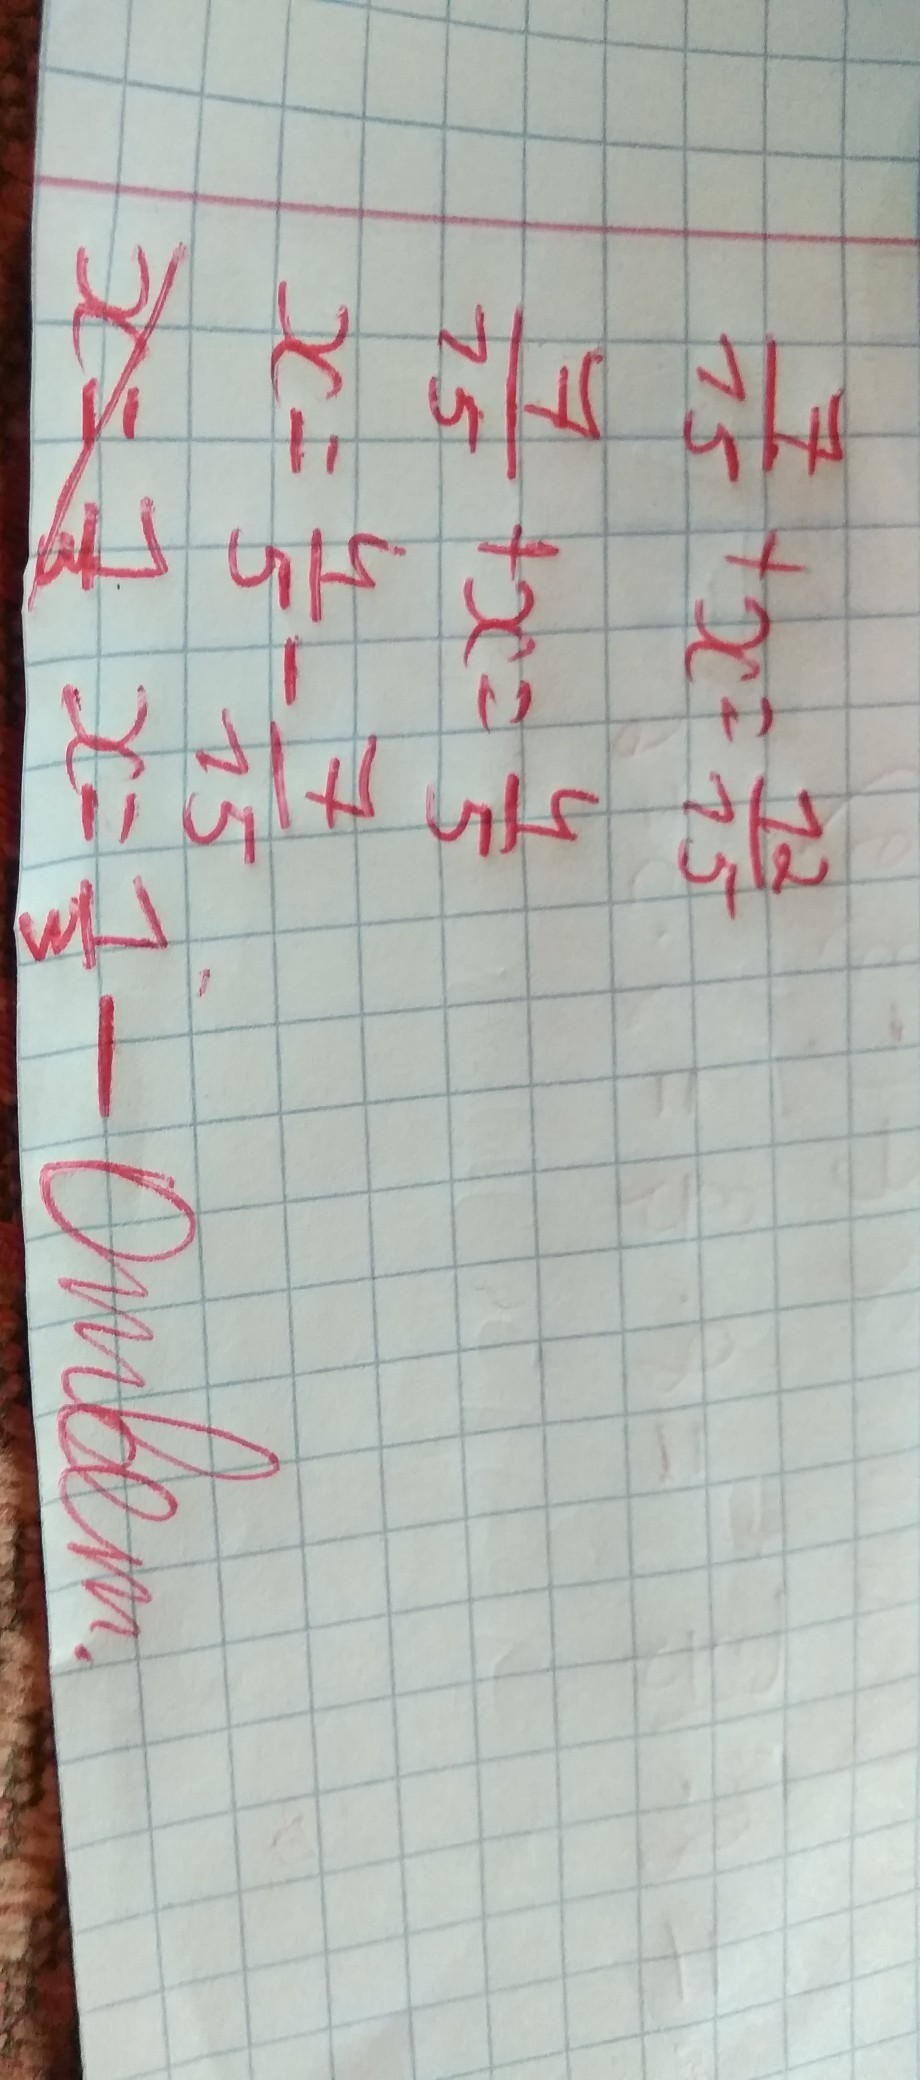 7/15 + x = 12/15
7/15 + x = 4/5
x = 4/5 - 7/15
x = 1/3 x = 1/3 — Ответ.